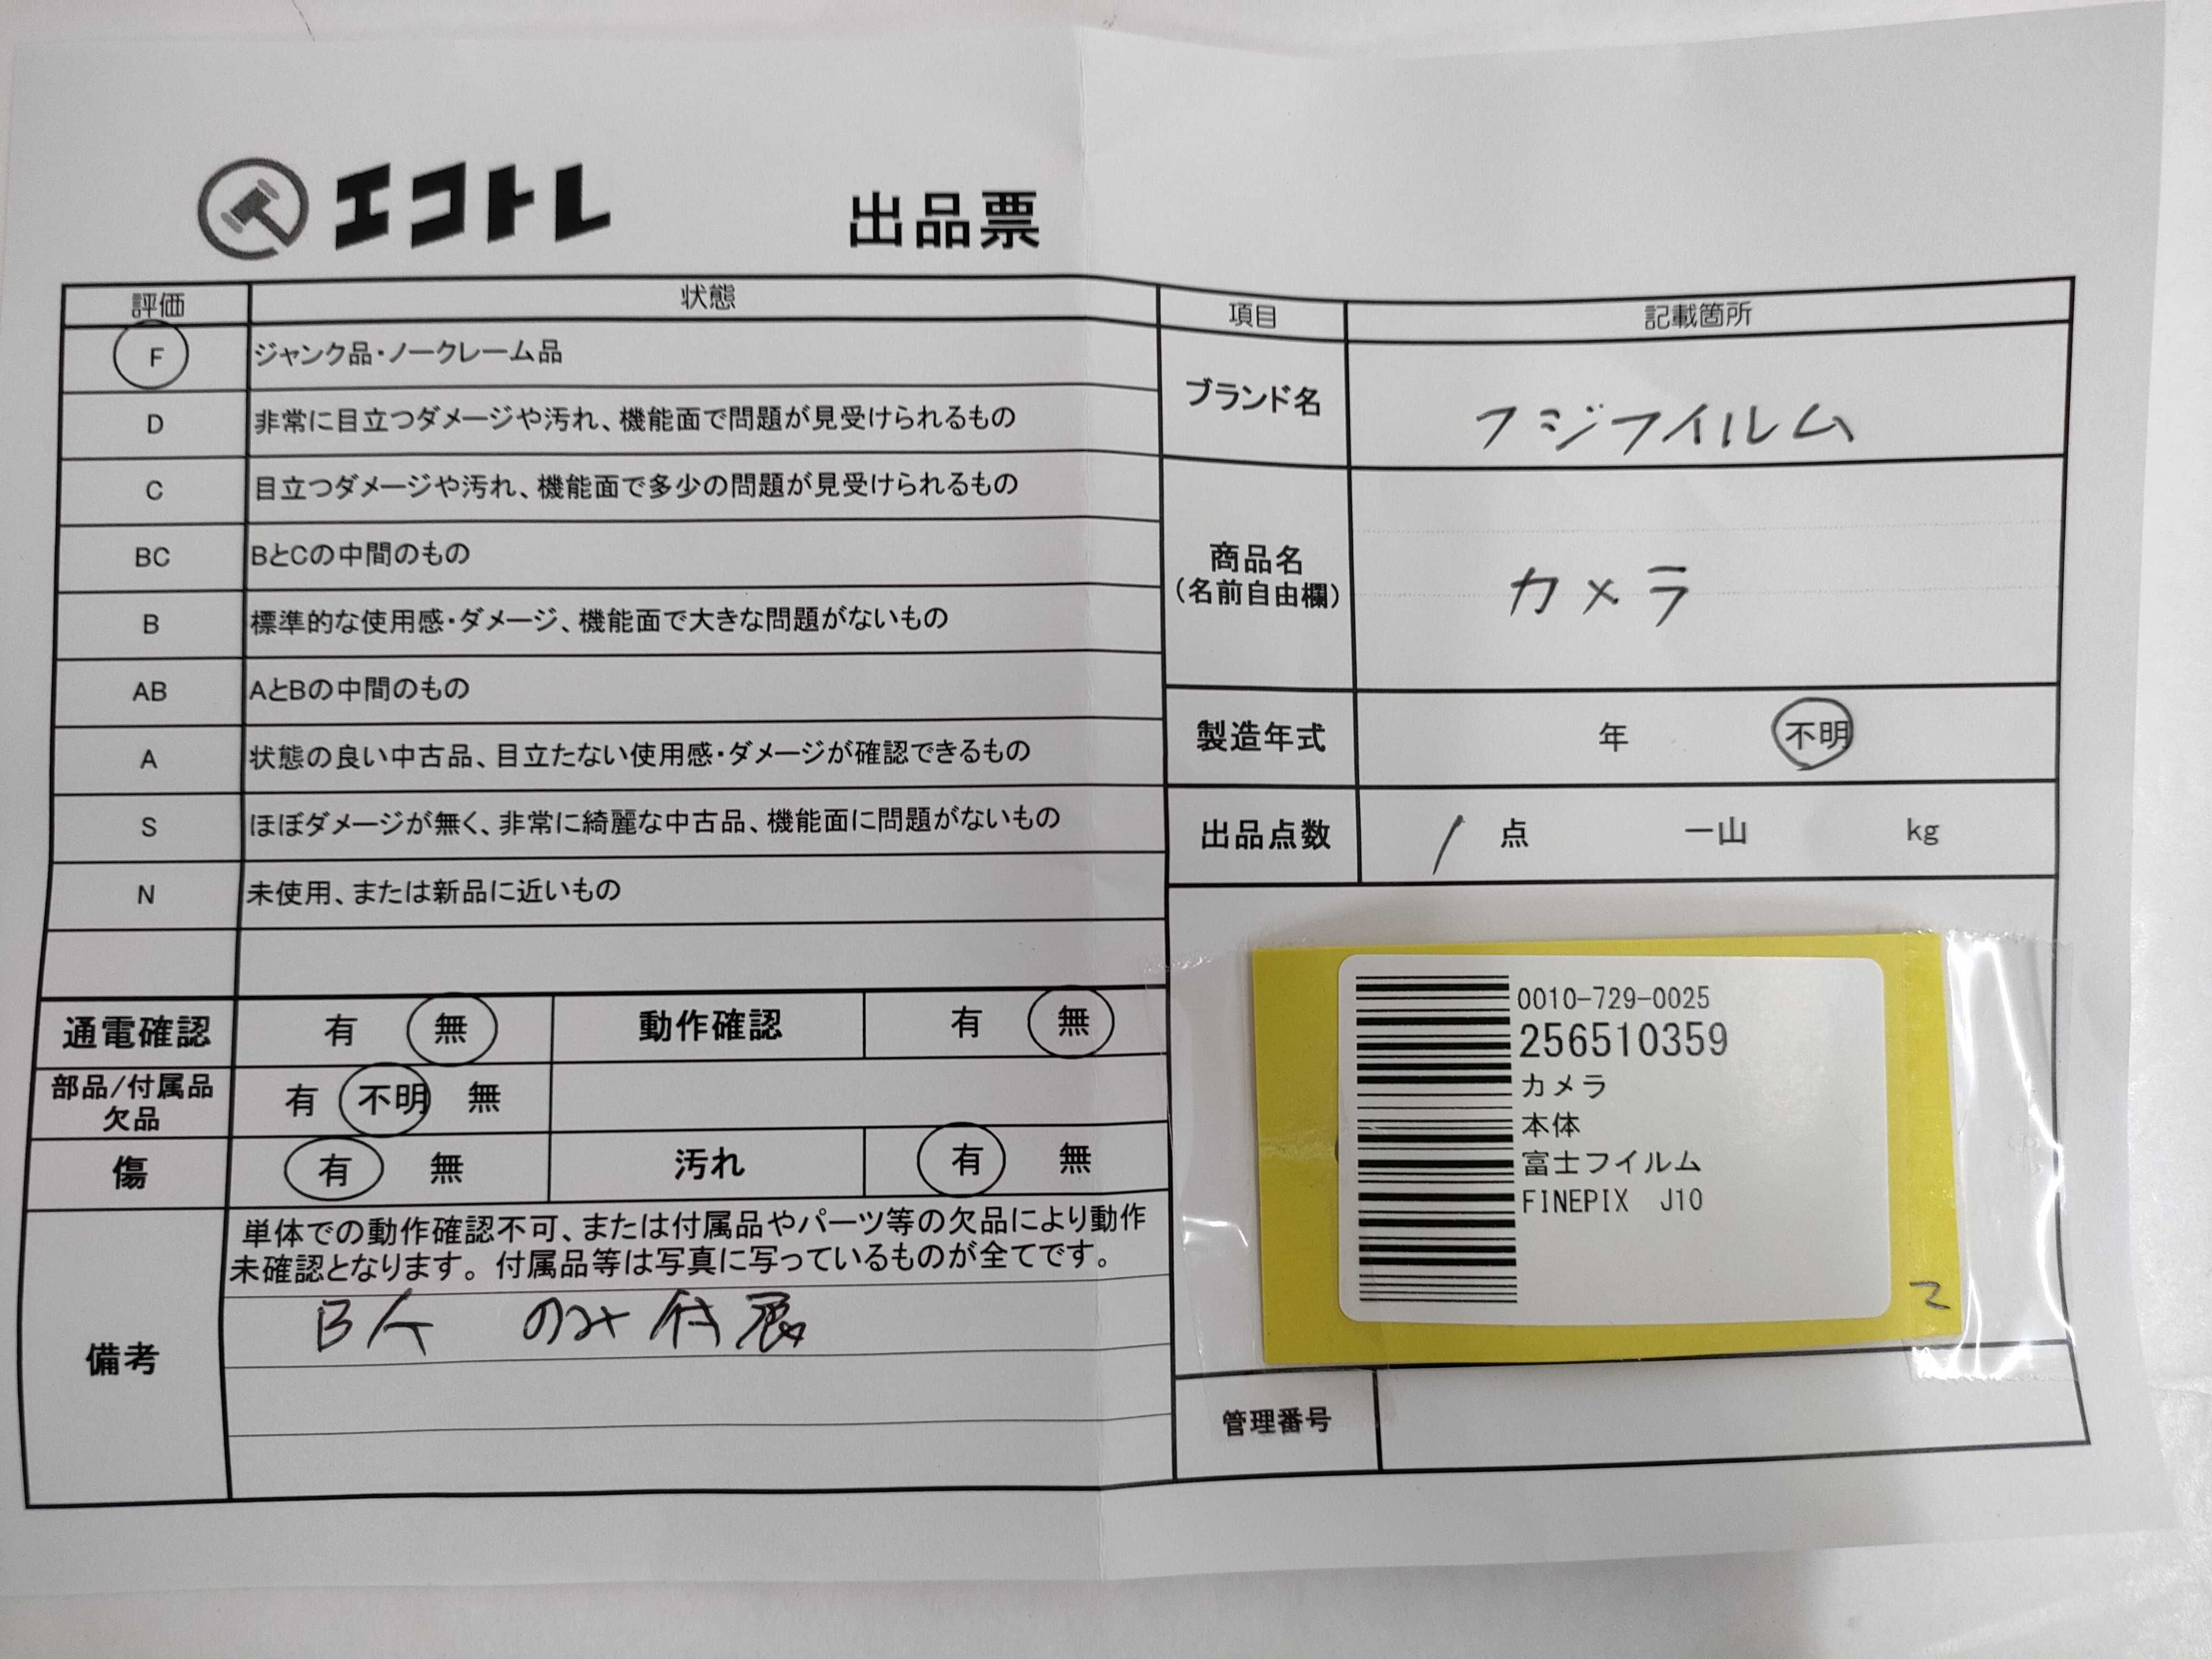 エコトレ 出品票
評価 状態
F ジャンク品・ノークレーム品
D 非常に目立つダメージや汚れ、機能面で問題が見受けられるもの
C 目立つダメージや汚れ、機能面で多少の問題が見受けられるもの
BC BとCの中間のもの
B 標準的な使用感・ダメージ、機能面で大きな問題がないもの
AB AとBの中間のもの
A 状態の良い中古品、目立たない使用感・ダメージが確認できるもの
S ほぼダメージが無く、非常に綺麗な中古品、機能面に問題がないもの
N 未使用、または新品に近いもの
通電確認 有 無 動作確認 有 無
部品/付属品
欠品 有 不明 無
傷 有 無 汚れ 有 無
備考
単体での動作確認不可、または付属品やパーツ等の欠品により動作
未確認となります。付属品等は写真に写っているものが全てです。
のみ付属
項目 記載箇所
ブランド名 フジフイルム
商品名
(名前自由欄) カメラ
製造年式 年 不明
出品点数 1 点 一山 kg
0010-729-0025
256510359
カメラ
本体
富士フイルム
FINEPIX J10
管理番号